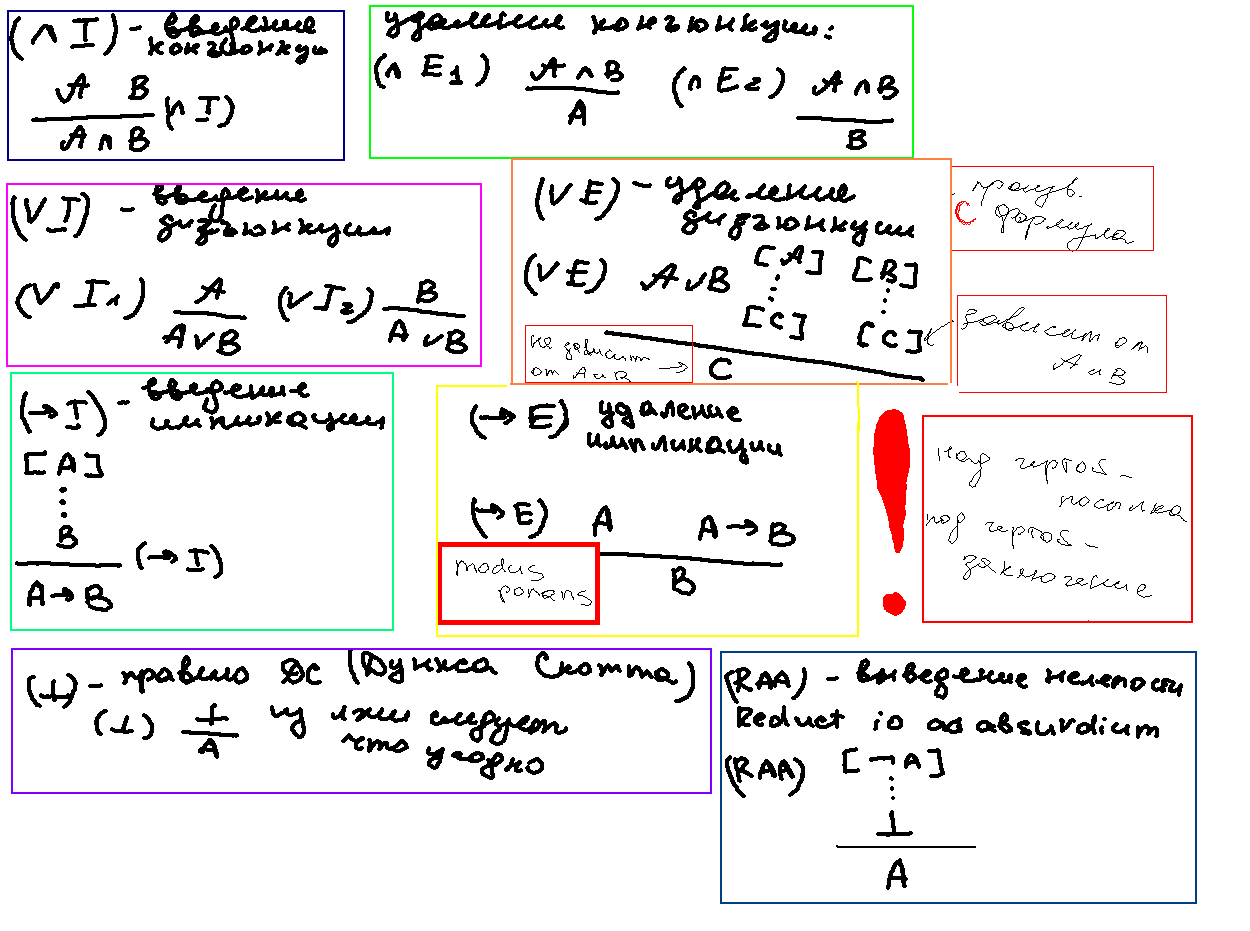 (∧ I) - введение
конъюнкции
A B
A ∧ B (∧ I)
удаления конъюнкции:
(∧ E₁) A ∧ B (∧ E₂) A ∧ B
A B
(∨ I) - введение
дизъюнкции
(∨ I₁) A (∨ I₂) B
A ∨ B A ∨ B
(∨ E) - удаление
дизъюнкции
(∨ E) A ∨ B [A] [B]
[C] [C]
C
не зависит
от A и B →
произв.
C формула
зависит от
A и B
(→ I) - введение
импликации
[A]
B
A → B (→ I)
(→ E) удаление
импликации
(→ E) A A → B
B
modus
ponens
!
над чертой -
посылка
под чертой -
заключение
(⊥) - правило ДС (Дункса Скотта)
(⊥) ⊥ из лжи следует
A что угодно
(RAA) - выведение нелепости
Reduct io ad absurdium
(RAA) [¬ A]
⊥
A